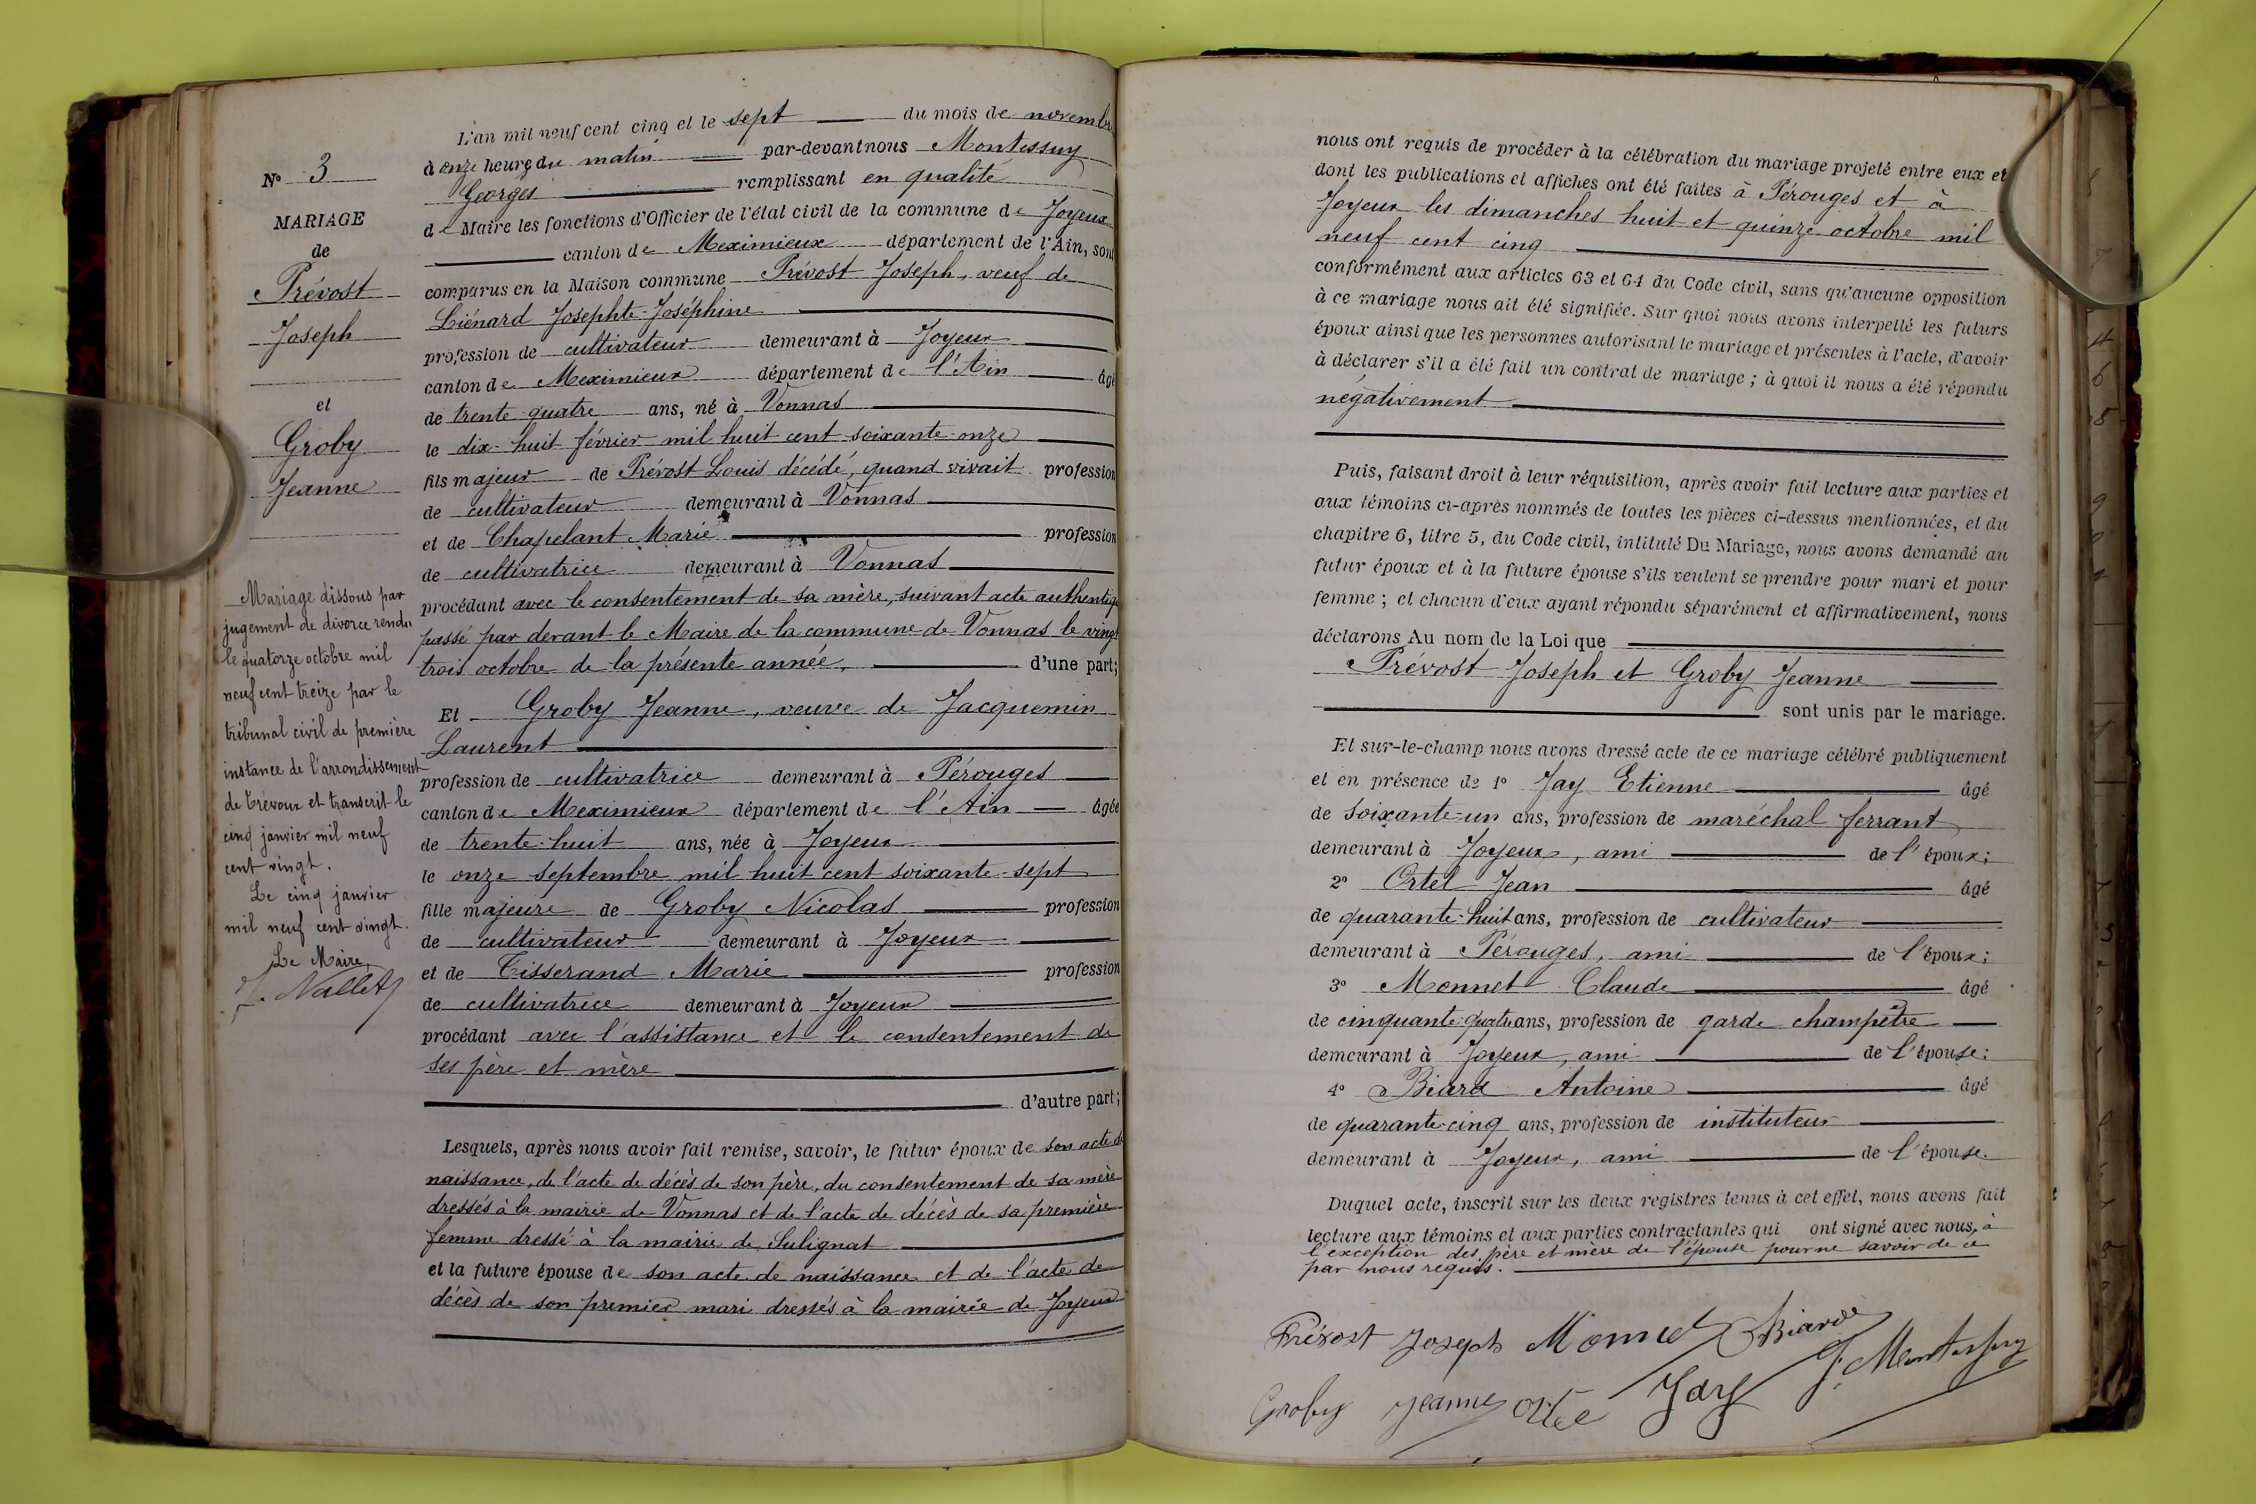 N° 3
MARIAGE
de
Prévost
Joseph
et
Groby
Jeanne
Mariage dissous par
jugement de divorce rendu
le quatorze octobre mil
neuf cent treize par le
tribunal civil de première
instance de l'arrondissement
de Trévoux et transcrit le
cinq janvier mil neuf
cent vingt.
Le cinq janvier
mil neuf cent vingt.
Le Maire,
Nallet
L'an mil neuf cent cinq et le sept du mois de novembre
à onze heures du matin par-devant nous Montessuy
Georges remplissant en qualité
de Maire les fonctions d'Officier de l'état civil de la commune de Joyeux
canton de Meximieux département de l'Ain, sont
comparus en la Maison commune Prévost Joseph, veuf de
Liénard Josephte-Joséphine
profession de cultivateur demeurant à Joyeux
canton de Meximieux département de l'Ain âgé
de trente-quatre ans, né à Vonnas
le dix-huit février mil huit cent soixante-onze
fils majeur de Prévost Louis décédé, quand vivait profession
de cultivateur demeurant à Vonnas
et de Chapelant Marie profession
de cultivatrice demeurant à Vonnas
procédant avec le consentement de sa mère, suivant acte authentiq
passé par devant le Maire de la commune de Vonnas le vingt
trois octobre de la présente année, d'une part;
Et Groby Jeanne, veuve de Jacquemin
Laurent
profession de cultivatrice demeurant à Pérouges
canton de Meximieux département de l'Ain âgée
de trente-huit ans, née à Joyeux
le onze septembre mil huit cent soixante-sept
fille majeure de Groby Nicolas profession
de cultivateur demeurant à Joyeux
et de Tisserand Marie profession
de cultivatrice demeurant à Joyeux
procédant avec l'assistance et le consentement de
ses père et mère
d'autre part;
Lesquels, après nous avoir fait remise, savoir, le futur époux de son acte de
naissance, de l'acte de décès de son père, du consentement de sa mère
dressés à la mairie de Vonnas et de l'acte de décès de sa première
femme dressé à la mairie de Sulignat
et la future épouse de son acte de naissance et de l'acte de
décès de son premier mari dressés à la mairie de Joyeux
nous ont requis de procéder à la célébration du mariage projeté entre eux et
dont les publications et affiches ont été faites à Pérouges et à
Joyeux les dimanches huit et quinze octobre mil
neuf cent cinq
conformément aux articles 63 et 64 du Code civil, sans qu'aucune opposition
à ce mariage nous ait été signifiée. Sur quoi nous avons interpellé les futurs
époux ainsi que les personnes autorisant le mariage et présentes à l'acte, d'avoir
à déclarer s'il a été fait un contrat de mariage; à quoi il nous a été répondu
négativement
Puis, faisant droit à leur réquisition, après avoir fait lecture aux parties et
aux témoins ci-après nommés de toutes les pièces ci-dessus mentionnées, et du
chapitre 6, titre 5, du Code civil, intitulé Du Mariage, nous avons demandé au
futur époux et à la future épouse s'ils veulent se prendre pour mari et pour
femme; et chacun d'eux ayant répondu séparément et affirmativement, nous
déclarons Au nom de la Loi que
Prévost Joseph et Groby Jeanne
sont unis par le mariage.
Et sur-le-champ nous avons dressé acte de ce mariage célébré publiquement
et en présence de 1° Jay Etienne âgé
de soixante-un ans, profession de maréchal ferrant
demeurant à Joyeux, ami de l'époux;
2° Ortel Jean âgé
de quarante-huit ans, profession de cultivateur
demeurant à Pérouges, ami de l'époux;
3° Monnet Claude âgé
de cinquante-quatre ans, profession de garde champêtre
demeurant à Joyeux, ami de l'épouse;
4° Biard Antoine âgé
de quarante-cinq ans, profession de instituteur
demeurant à Joyeux, ami de l'épouse.
Duquel acte, inscrit sur les deux registres tenus à cet effet, nous avons fait
lecture aux témoins et aux parties contractantes qui ont signé avec nous, à
l'exception des père et mère de l'épouse pour ne savoir de ce
par nous requis.
Prévost Joseph Monnet Biard
G. Montessuy
Groby Jeanne Ortel Jay